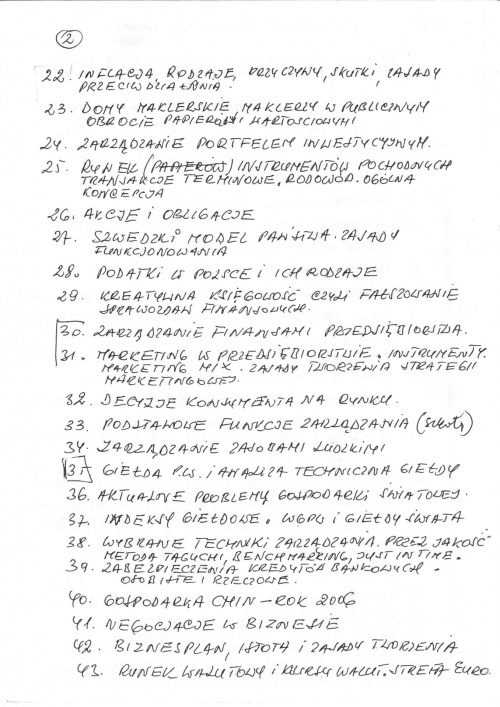 2
22. INFLACJA, RODZAJE, PRZYCZYNY, SKUTKI, ZASADY
PRZECIWDZIAŁANIA.
23. DOMY MAKLERSKIE, MAKLERZY W PUBLICZNYM
OBROCIE PAPIERAMI WARTOŚCIOWYMI
24. ZARZĄDZANIE PORTFELEM INWESTYCYJNYM.
25. RYNEK (PAPIERÓW) INSTRUMENTÓW POCHODNYCH
TRANSAKCJE TERMINOWE, RODOWÓD. OGÓLNA
KONCEPCJA
26. AKCJE I OBLIGACJE
27. SZWEDZKI MODEL PAŃSTWA. ZASADY
FUNKCJONOWANIA
28. PODATKI W POLSCE I ICH RODZAJE
29. KREATYWNA KSIĘGOWOŚĆ CZYLI FAŁSZOWANIE
SPRAWOZDAŃ FINANSOWYCH.
30. ZARZĄDZANIE FINANSAMI PRZEDSIĘBIORSTWA.
31. MARKETING W PRZEDSIĘBIORSTWIE. INSTRUMENTY.
MARKETING MIX. ZASADY TWORZENIA STRATEGII
MARKETINGOWEJ.
32. DECYZJE KONSUMENTA NA RYNKU.
33. PODSTAWOWE FUNKCJE ZARZĄDZANIA (SZKOŁY)
34. ZARZĄDZANIE ZASOBAMI LUDZKIMI
35. GIEŁDA P.W. I ANALIZA TECHNICZNA GIEŁDY
36. AKTUALNE PROBLEMY GOSPODARKI ŚWIATOWEJ.
37. INDEKSY GIEŁDOWE. WGPW I GIEŁDY ŚWIATA
38. WYBRANE TECHNIKI ZARZĄDZANIA PRZEZ JAKOŚĆ
METODA TAGUCHI, BENCHMARKING, JUST IN TIME.
39. ZABEZPIECZENIA KREDYTÓW BANKOWYCH.
OSOBISTE I RZECZOWE.
40. GOSPODARKA CHIN – ROK 2006
41. NEGOCJACJE W BIZNESIE
42. BIZNESPLAN, ISTOTA I ZASADY TWORZENIA
43. RYNEK WALUTOWY I KURSY WALUT. STREFA EURO